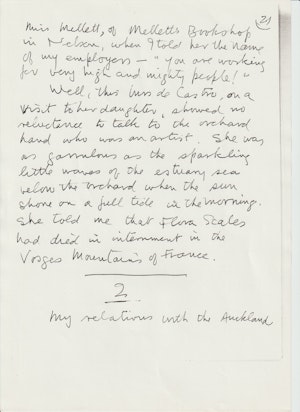 21
Miss Mellett, of Melletts Bookshop
in Nelson, when I told her the name
of my employers — "you are working
for very high and mighty people!"
Well, this Mrs de Castro, on a
visit to her daughter, showed no
reluctance to talk to the orchard
hand who was an artist. She was
as garrulous as the sparkling
little waves of the estuary sea
below the orchard when the sun
shone on a full tide in the morning.
She told me that Flora Scales
had died in internment in the
Vosges Mountains of France.
2
My relations with the Auckland